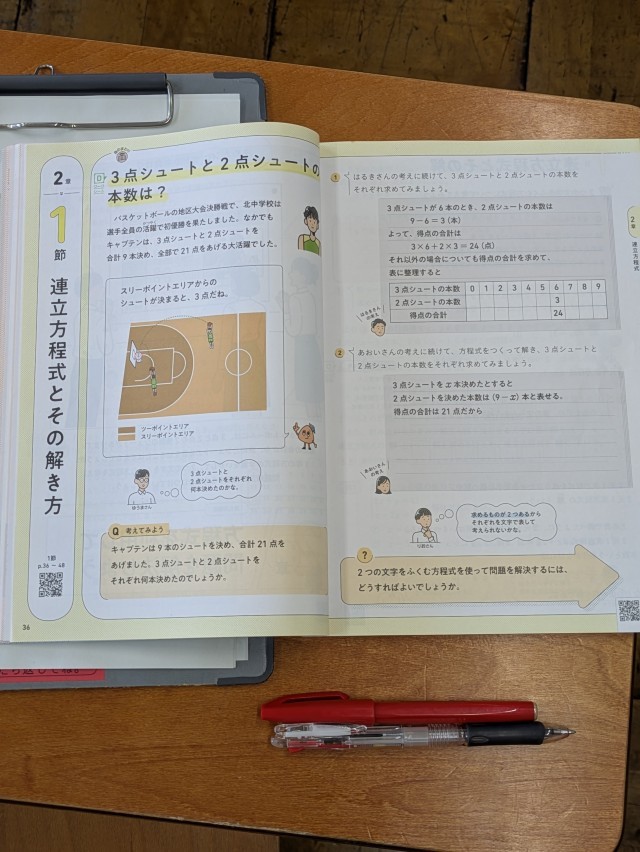 2章
1節
連立方程式とその解き方
1節
p.36 〜 48
36
3点シュートと2点シュートの
本数は?
バスケットボールの地区大会決勝戦で、北中学校は
選手全員の活躍で初優勝を果たしました。なかでも
キャプテンは、3点シュートと2点シュートを
合計9本決め、全部で21点をあげる大活躍でした。
スリーポイントエリアからの
シュートが決まると、3点だね。
ツーポイントエリア
スリーポイントエリア
3点シュートと
2点シュートをそれぞれ
何本決めたのかな。
ゆうまさん
Q 考えてみよう
キャプテンは9本のシュートを決め、合計21点を
あげました。3点シュートと2点シュートを
それぞれ何本決めたのでしょうか。
1 はるきさんの考えに続けて、3点シュートと2点シュートの本数を
それぞれ求めてみましょう。
3点シュートが6本のとき、2点シュートの本数は
9−6=3(本)
よって、得点の合計は
3×6+2×3=24(点)
それ以外の場合についても得点の合計を求めて、
表に整理すると
3点シュートの本数 0 1 2 3 4 5 6 7 8 9
2点シュートの本数 3
得点の合計 24
はるきさんの考え
2 あおいさんの考えに続けて、方程式をつくって解き、3点シュートと
2点シュートの本数をそれぞれ求めてみましょう。
3点シュートをx本決めたとすると
2点シュートを決めた本数は(9−x)本と表せる。
得点の合計は21点だから
あおいさんの考え
求めるものが2つあるから
それぞれを文字で表して
考えられないかな。
?
2つの文字をふくむ方程式を使って問題を解決するには、
どうすればよいでしょうか。
2章
連立方程式